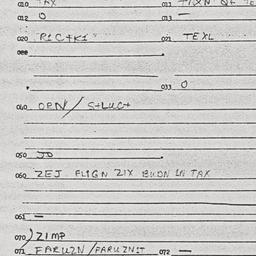 010 TAX 011
012 O 013 —
020 RIC+KI 021 TEXL
033 O
040 OPN/ S+LUC+
050 JD
060 ZEJ FLIGN ZIX BUDN IN TAX
061 —
070 ZIMP
071 FARUZN/FARUZNIT 072 —